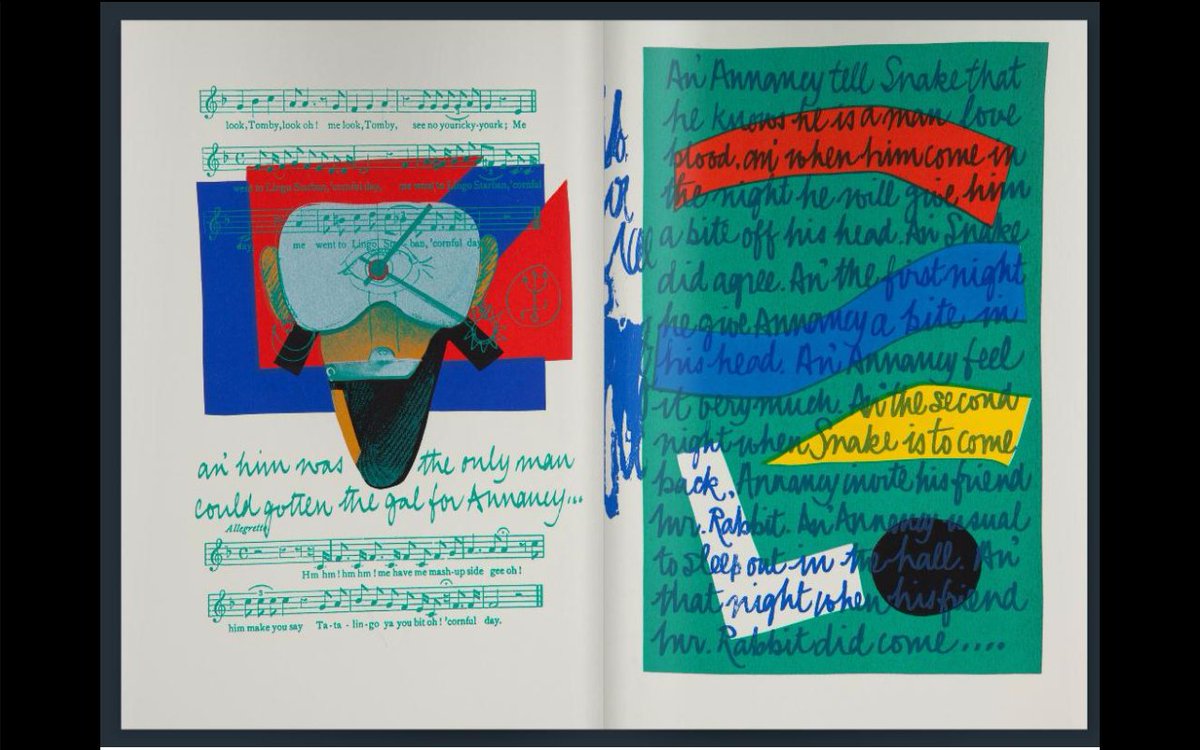 look, Tomby, look oh! me look, Tomby, see no youricky-yourk; Me
went to Lingo Starban, 'cornful day, me went to Lingo Starban, 'cornful
day, me went to Lingo Starban, 'cornful day
an' him was the only man
could gotten the gal for Annancy...
Allegretto
Hm hm! hm hm! me have me mash-up side gee oh!
him make you say Ta-ta-lin-go ya you bit oh! 'cornful day.
An' Annancy tell Snake that
he knows he is a man love
blood, an' when him come in
the night he will give him
a bite off his head. An' Snake
did agree. An' the first night
he give Annancy a bite in
his head. An' Annancy feel
it bery much. An' the second
night when Snake is to come
back, Annancy invite his friend
Mr. Rabbit. An' Annancy usual
to sleep out in the hall. An'
that night when his friend
Mr. Rabbit did come ....